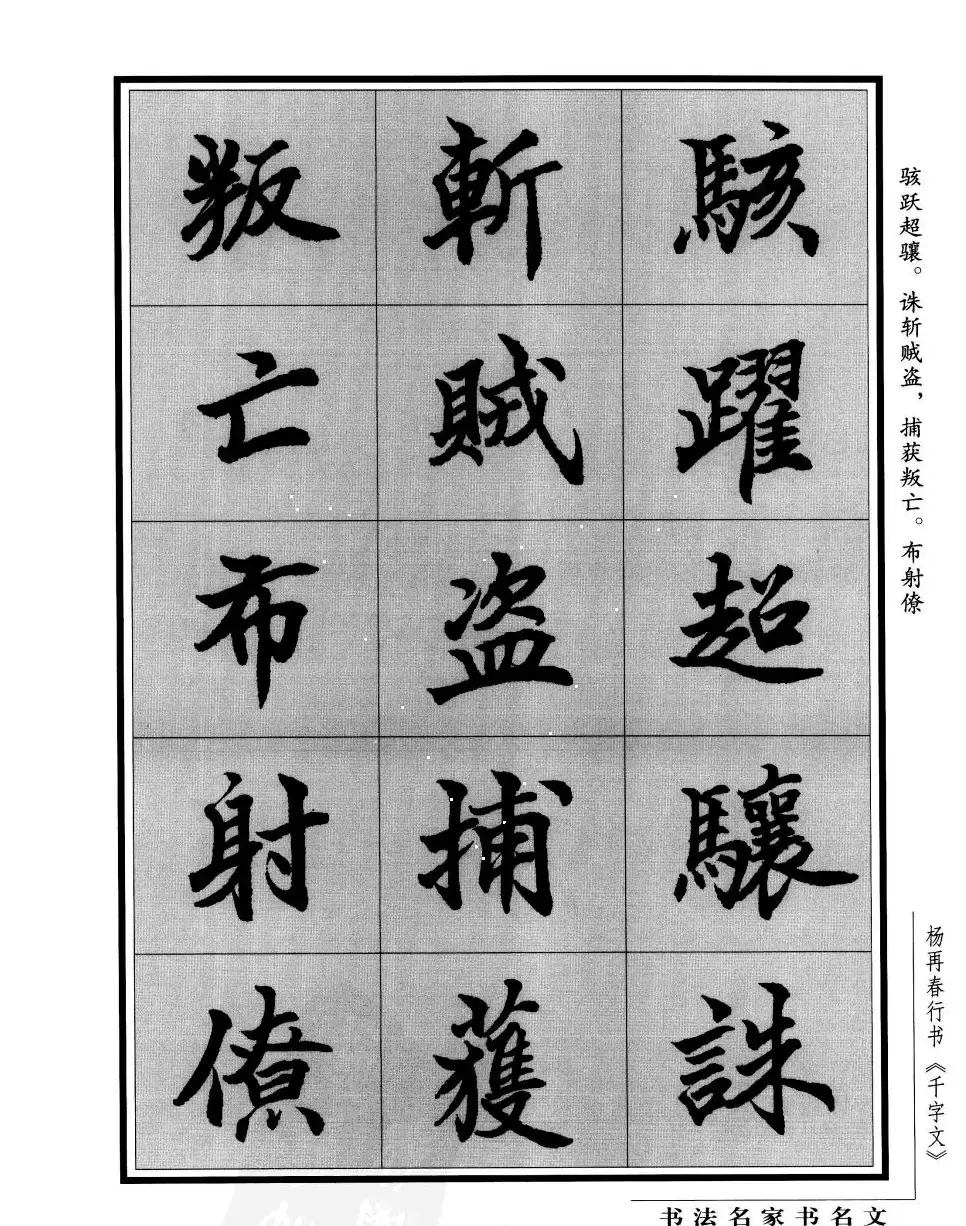 駭躍超驤誅
斬賊盗捕獲
叛亡布射僚
骇跃超骧。诛斩贼盗，捕获叛亡。布射僚
杨再春行书《千字文》
书法名家书名文